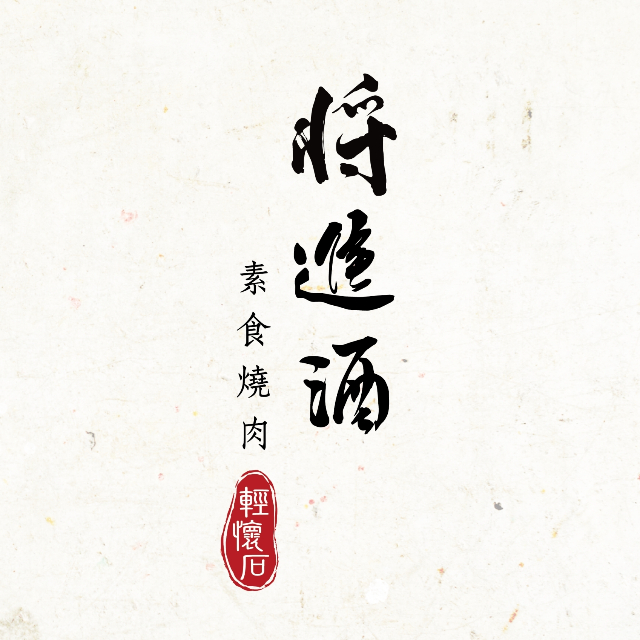 將進酒
素食燒肉
輕懷石